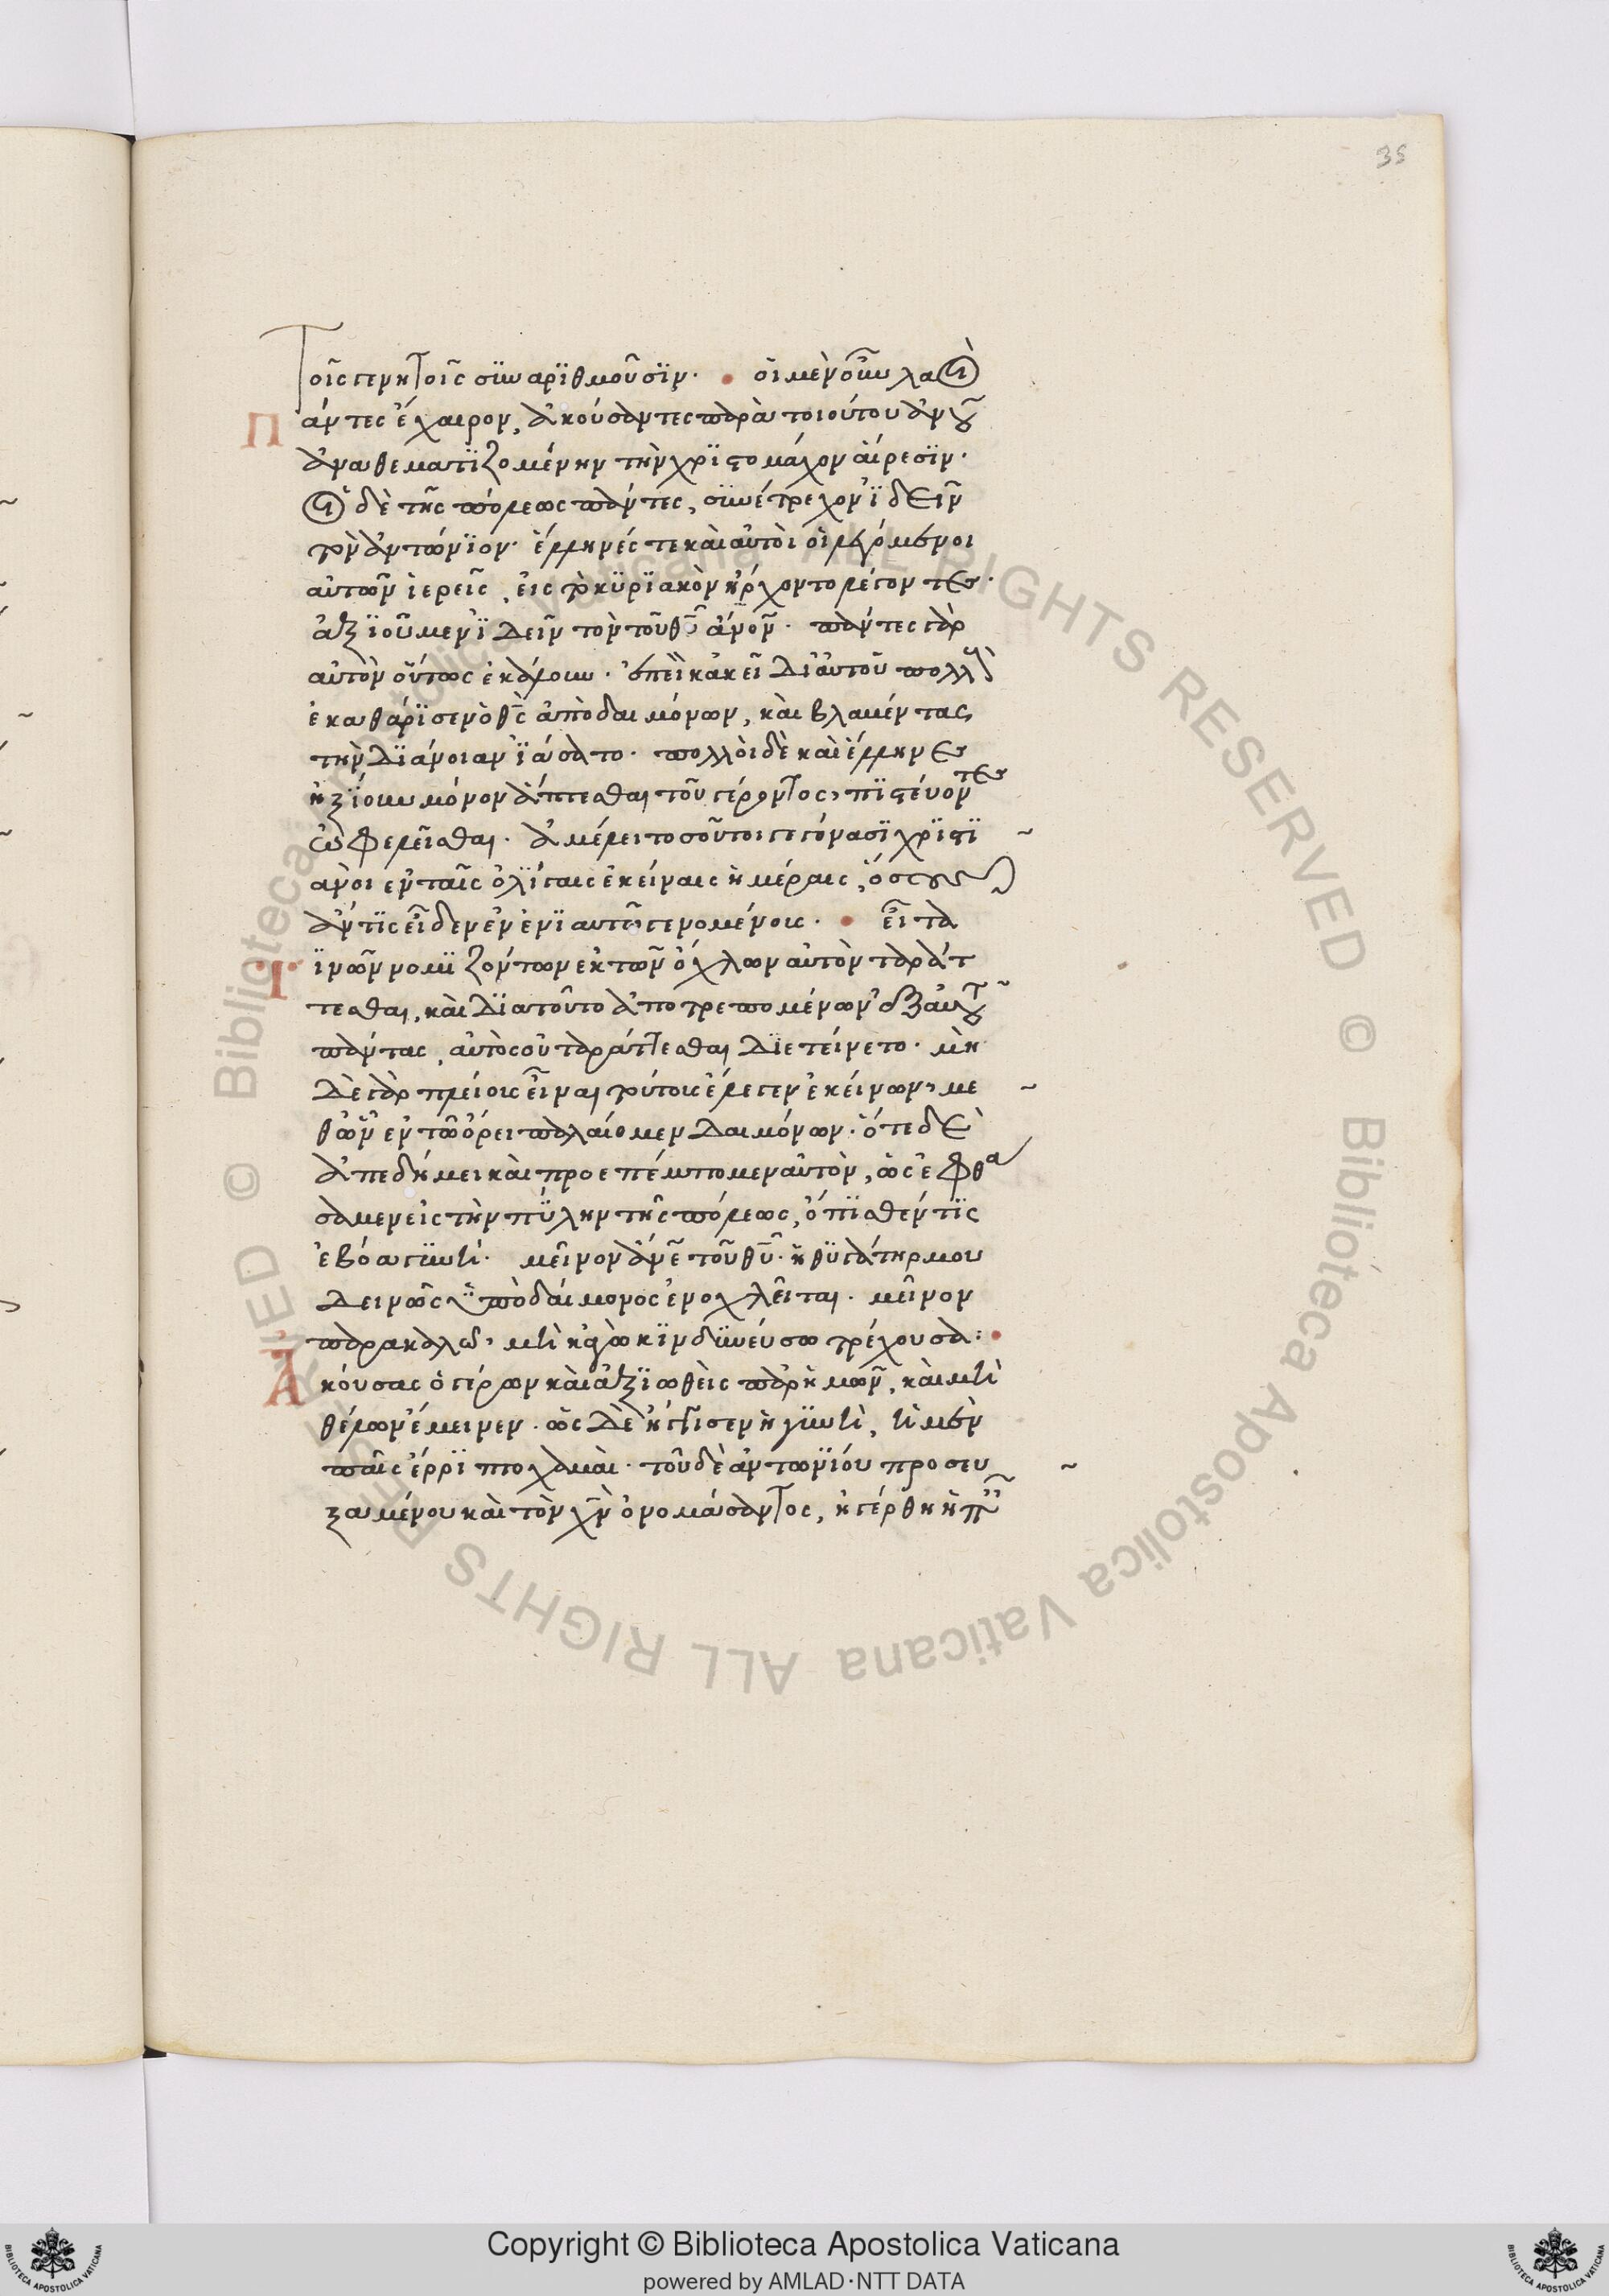 35
Τοῖς γενητοῖς συναριθμοῦσιν· οἱ μὲν οὖν λαοὶ
πάντες ἔχαιρον, ἀκούσαντες παρὰ τοιούτου ἀν̅ου
ἀναθεματιζομένην τὴν χριστομάχον αἵρεσιν·
οἱ δὲ τῆς πόλεως πάντες, συνέτρεχον ἰδεῖν
τὸν ἀντώνιον· ἕλληνές τε καὶ αὐτοὶ οἱ λεγόμενοι
αὐτῶν ἱερεῖς, εἰς τὸ κυριακὸν ἤρχοντο λέγοντες·
ἀξιοῦμεν ἰδεῖν τὸν τοῦ θ̅υ ἄν̅ον· πάντες γὰρ
αὐτὸν οὕτως ἐκάλουν· ἐπεὶ κἀκεῖ δι αὐτοῦ πολλοὺς
ἐκαθάρισεν ὁ θ̅ς ἀπὸ δαιμόνων, καὶ βλαμέντας
τὴν διάνοιαν ἰάσατο· πολλοὶ δὲ καὶ ἕλληνες
ἠξίουν μόνον ἅπτεσθαι τοῦ γέροντος, πιστεύοντες
ὠφελεῖσθαι· ἀμέλει τοσοῦτοι γεγόνασι χριστι
ανοὶ ἐν ταῖς ὀλίγαις ἐκείναις ἡμέραις, ὅσους
ἄν τις εἶδεν ἐν ἐνιαυτῷ γενομένους· εἶτα
τινῶν νομιζόντων ἐκ τῶν ὄχλων αὐτὸν ταράτ
τεσθαι, καὶ διατοῦτο ἀποτρεπομένων ἀπ αὐτοῦ
πάντας, αὐτὸς οὐ ταράττεσθαι διετείνετο· μη
δὲ γὰρ πλείους εἶναι τούτους ἔλεγεν ἐκείνων, με
θ ὧν ἐν τῷ ὄρει παλαίομεν δαιμόνων· ὅτε δὲ
ἀπεδήμει καὶ προεπέμπομεν αὐτὸν, ὡς ἐφθά
σαμεν εἰς τὴν πύλην τῆς πόλεως, ὄπισθέν τις
ἐβόα γυνή· μεῖνον ἄν̅ε τοῦ θ̅υ· ἡ θυγάτηρ μου
δεινῶς ὑπὸ δαίμονος ἐνοχλεῖται· μεῖνον
παρακαλῶ, μὴ κἀγὼ κινδυνεύσω τρέχουσα:
Ἀκούσας ὁ γέρων καὶ ἀξιωθεὶς παρ ἡμῶν, καὶ μὴ
θέλων ἔμεινεν· ὡς δὲ ἤγγισεν ἡ γυνὴ, ἡ μὲν
παῖς ἔρριπτο χαμαί· τοῦ δὲ ἀντωνίου προσευ
ξαμένου καὶ τὸν χ̅ν ὀνομάσαντος, ἠγέρθη ἡ παῖς